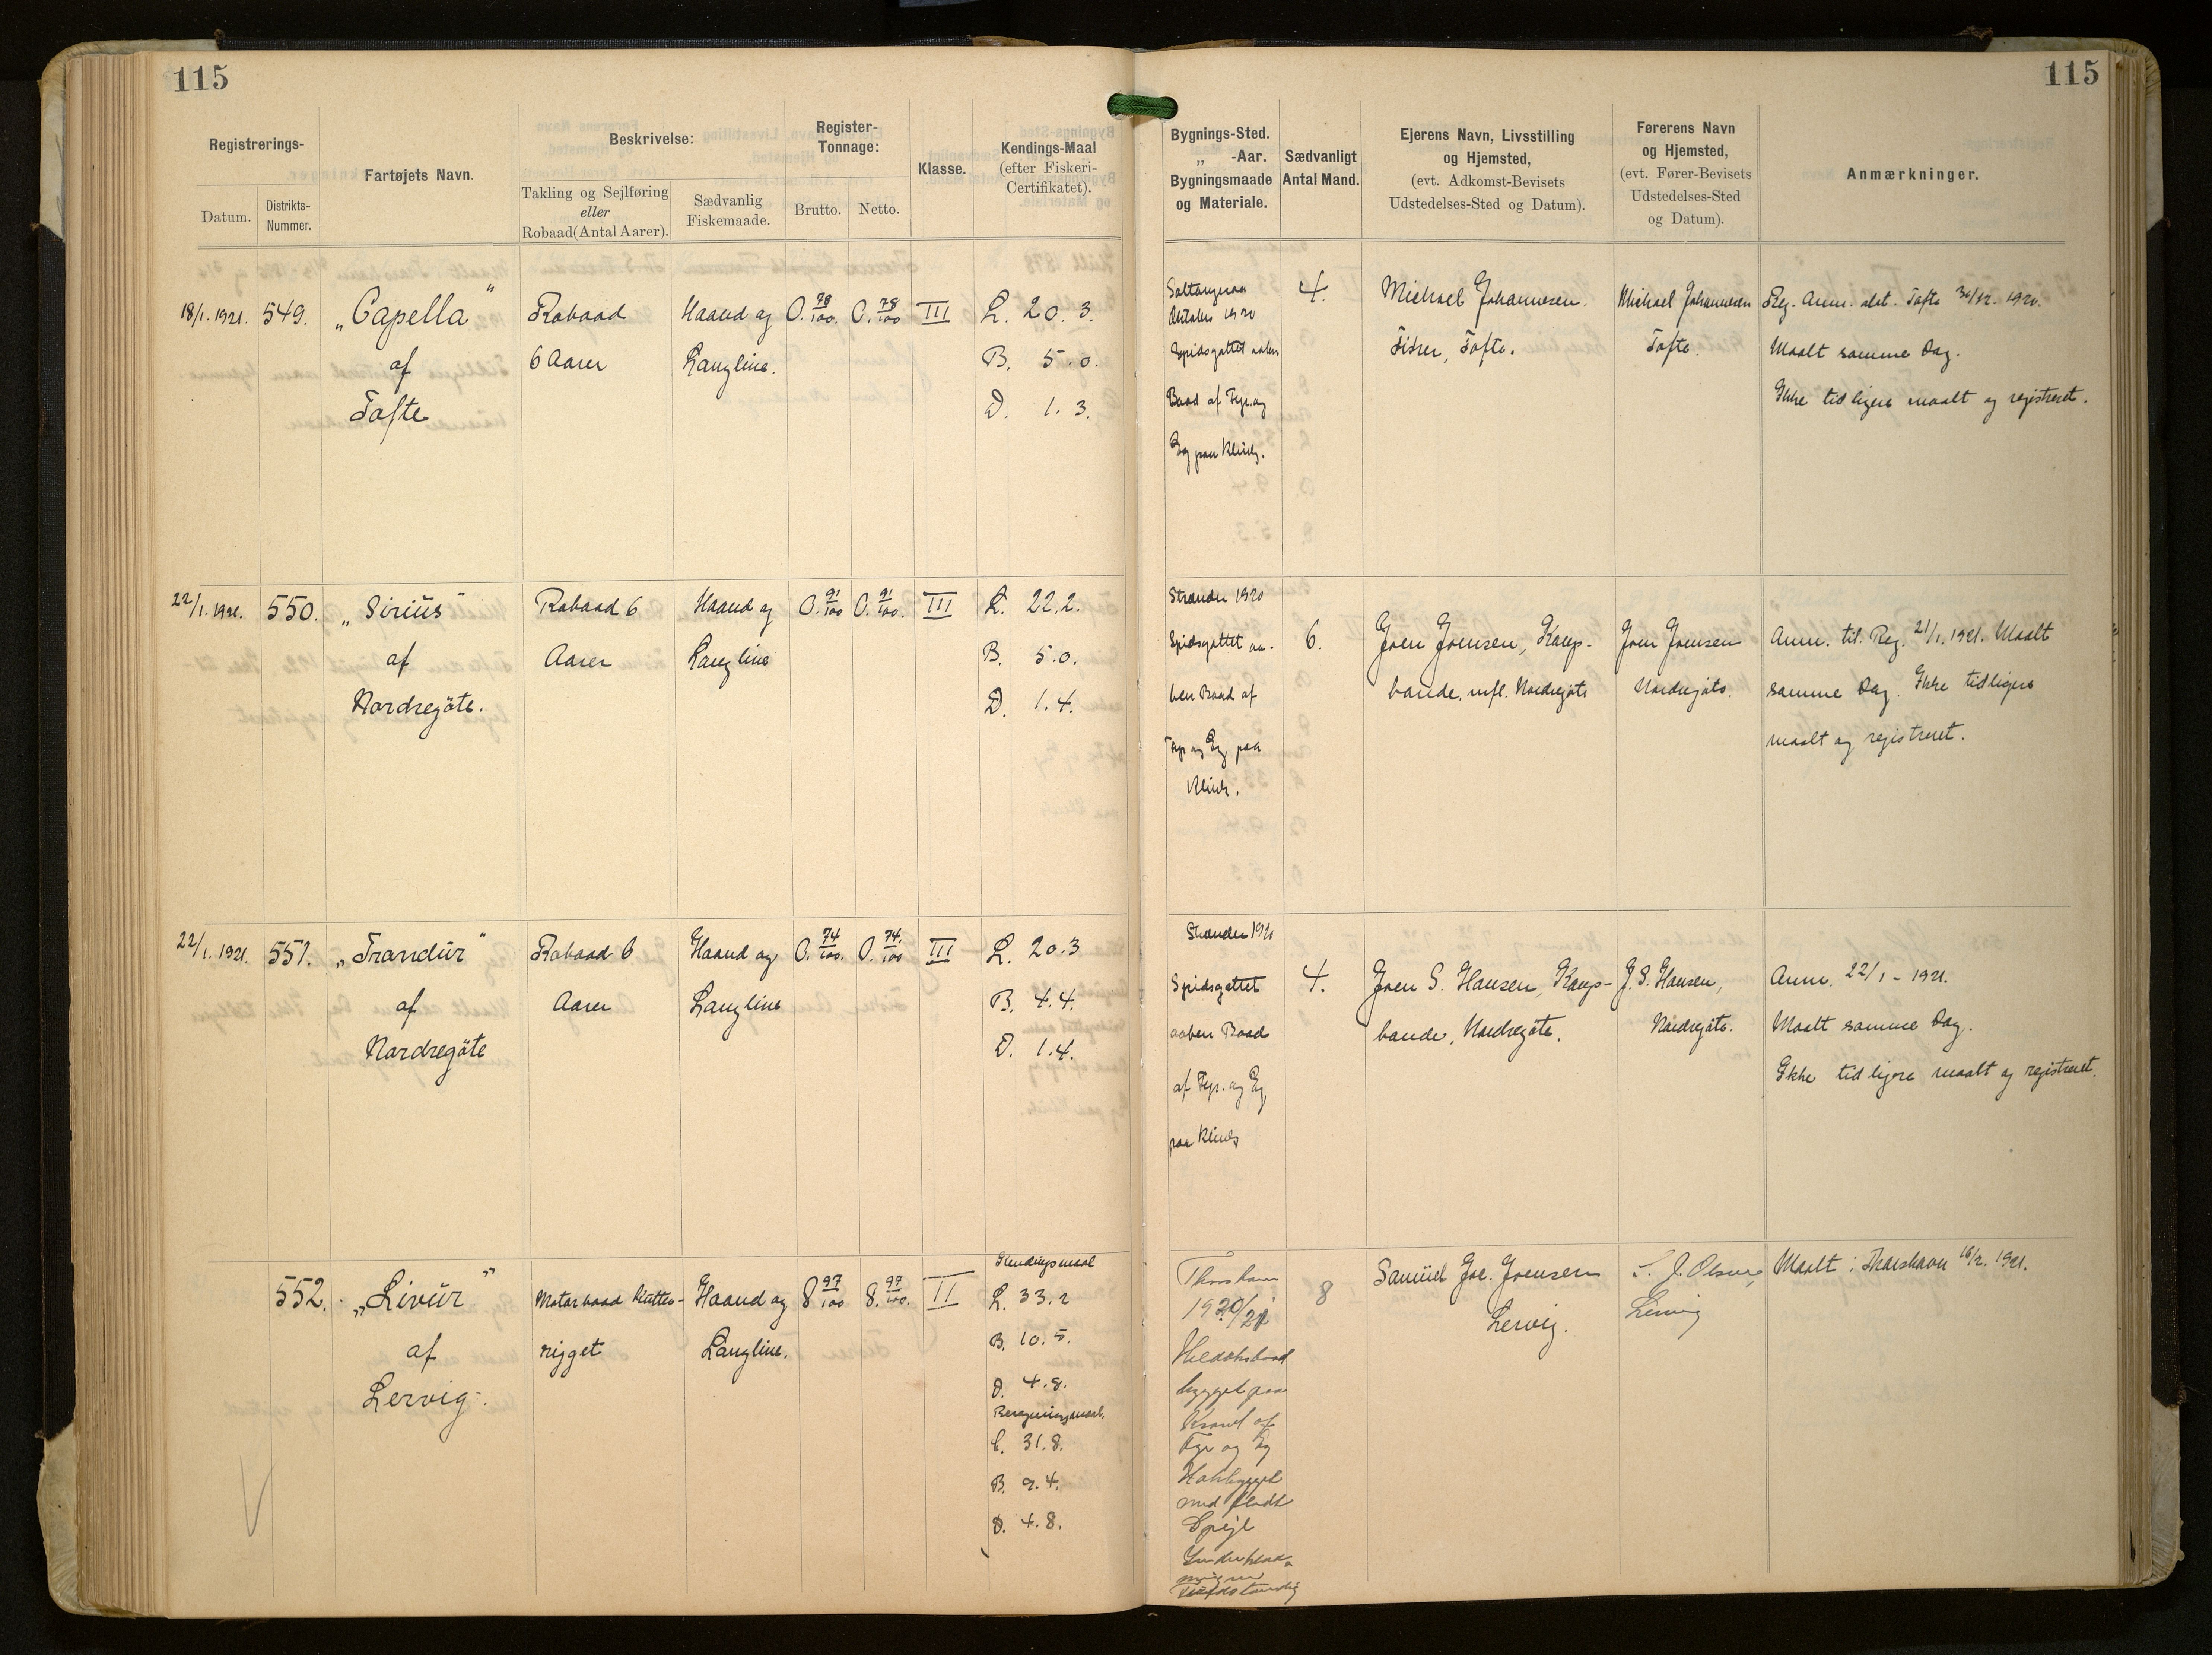 115
115
Registrerings-
Datum.
Distrikts-
Nummer.
Fartøjets Navn.
Beskrivelse:
Takling og Sejlføring
eller
Robaad (Antal Aarer).
Sædvanlig
Fiskemaade.
Register-
Tonnage:
Brutto.
Netto.
Klasse.
Kendings-Maal
(efter Fiskeri-
Certifikatet).
Bygnings-Sted.
„ -Aar.
Bygningsmaade
og Materiale.
Sædvanligt
Antal Mand.
Ejerens Navn, Livsstilling
og Hjemsted,
(evt. Adkomst-Bevisets
Udstedelses-Sted og Datum).
Førerens Navn
og Hjemsted,
(evt. Fører-Bevisets
Udstedelses-Sted
og Datum).
Anmærkninger.
18/1. 1921.
549.
„Capella"
af
Tofte
Robaad
6 Aarer
Haand og
Langline.
0. 78/100.
0. 78/100
III
L. 20. 3.
B. 5. 0.
D. 1. 3.
1920
Spidsgattet aaben
Baad af Fyr. og
Eg paa Klink.
4.
Michael Johannesen.
Fisker, Tofte.
Michael Johannesen
Tofte.
Reg. Anm. dat. Tofte 30/12. 1920.
Maalt samme Dag.
Ikke tidligere maalt og registreret.
22/1. 1921.
550.
„Sirius"
af
Nordregöte.
Robaad 6
Aarer
Haand og
Langline
0. 91/100
0. 91/100.
III
L. 22.2.
B. 5.0.
D. 1.4.
Strender 1920
Spidsgattet aa-
ben Baad af
Fyr og Eg paa
Klink.
6.
Joen Joensen, Kong-
bonde, mfl. Nordregöte
Joen Joensen
Nordregöte.
Anm. til Reg. 21/1. 1921. Maalt
samme Dag. Ikke tidligere
maalt og registreret.
22/1. 1921.
551.
„Trandur"
af
Nordregöte
Robaad 6
Aarer
Haand og
Langline
0. 74/100.
0. 74/100
III
L. 20.3
B. 4.4.
D. 1.4.
Strender 1920
Spidsgattet
aaben Baad
af Fyr. og Eg
paa Klink
4.
Joen S. Hansen, Kong-
bonde, Nordregöte.
J. S. Hansen,
Nordregöte.
Anm. 22/1 - 1921.
Maalt samme Dag.
Ikke tidligere maalt og registreret.
552.
„Livur"
af
Lervig.
Motorbaad Kutter-
rigget
Haand og
Langline.
8 97/100
8. 97/100.
II
Kendingsmaal
L. 33.2
B. 10.5.
D. 4.8.
Beregningsmaal.
L. 31.8.
B. 9.4.
D. 4.8.
Thorshavn
1920/21
Hel
bygget paa
Kravel af
Fyr og Eg
med fladt
Spejl
8
Samuel Joe. Joensen
Lervig.
J. Olsen,
Lervig
Maalt i Thorshavn 16/2. 1921.